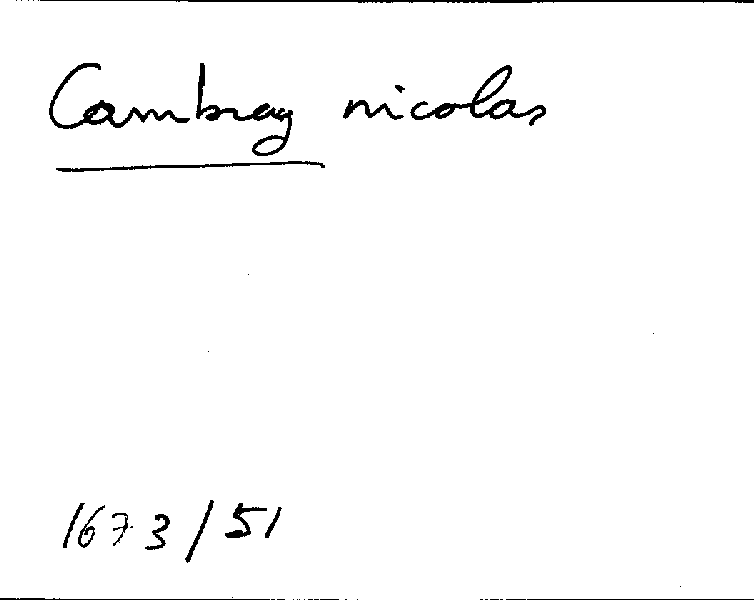 Cambray nicolas
1673/51